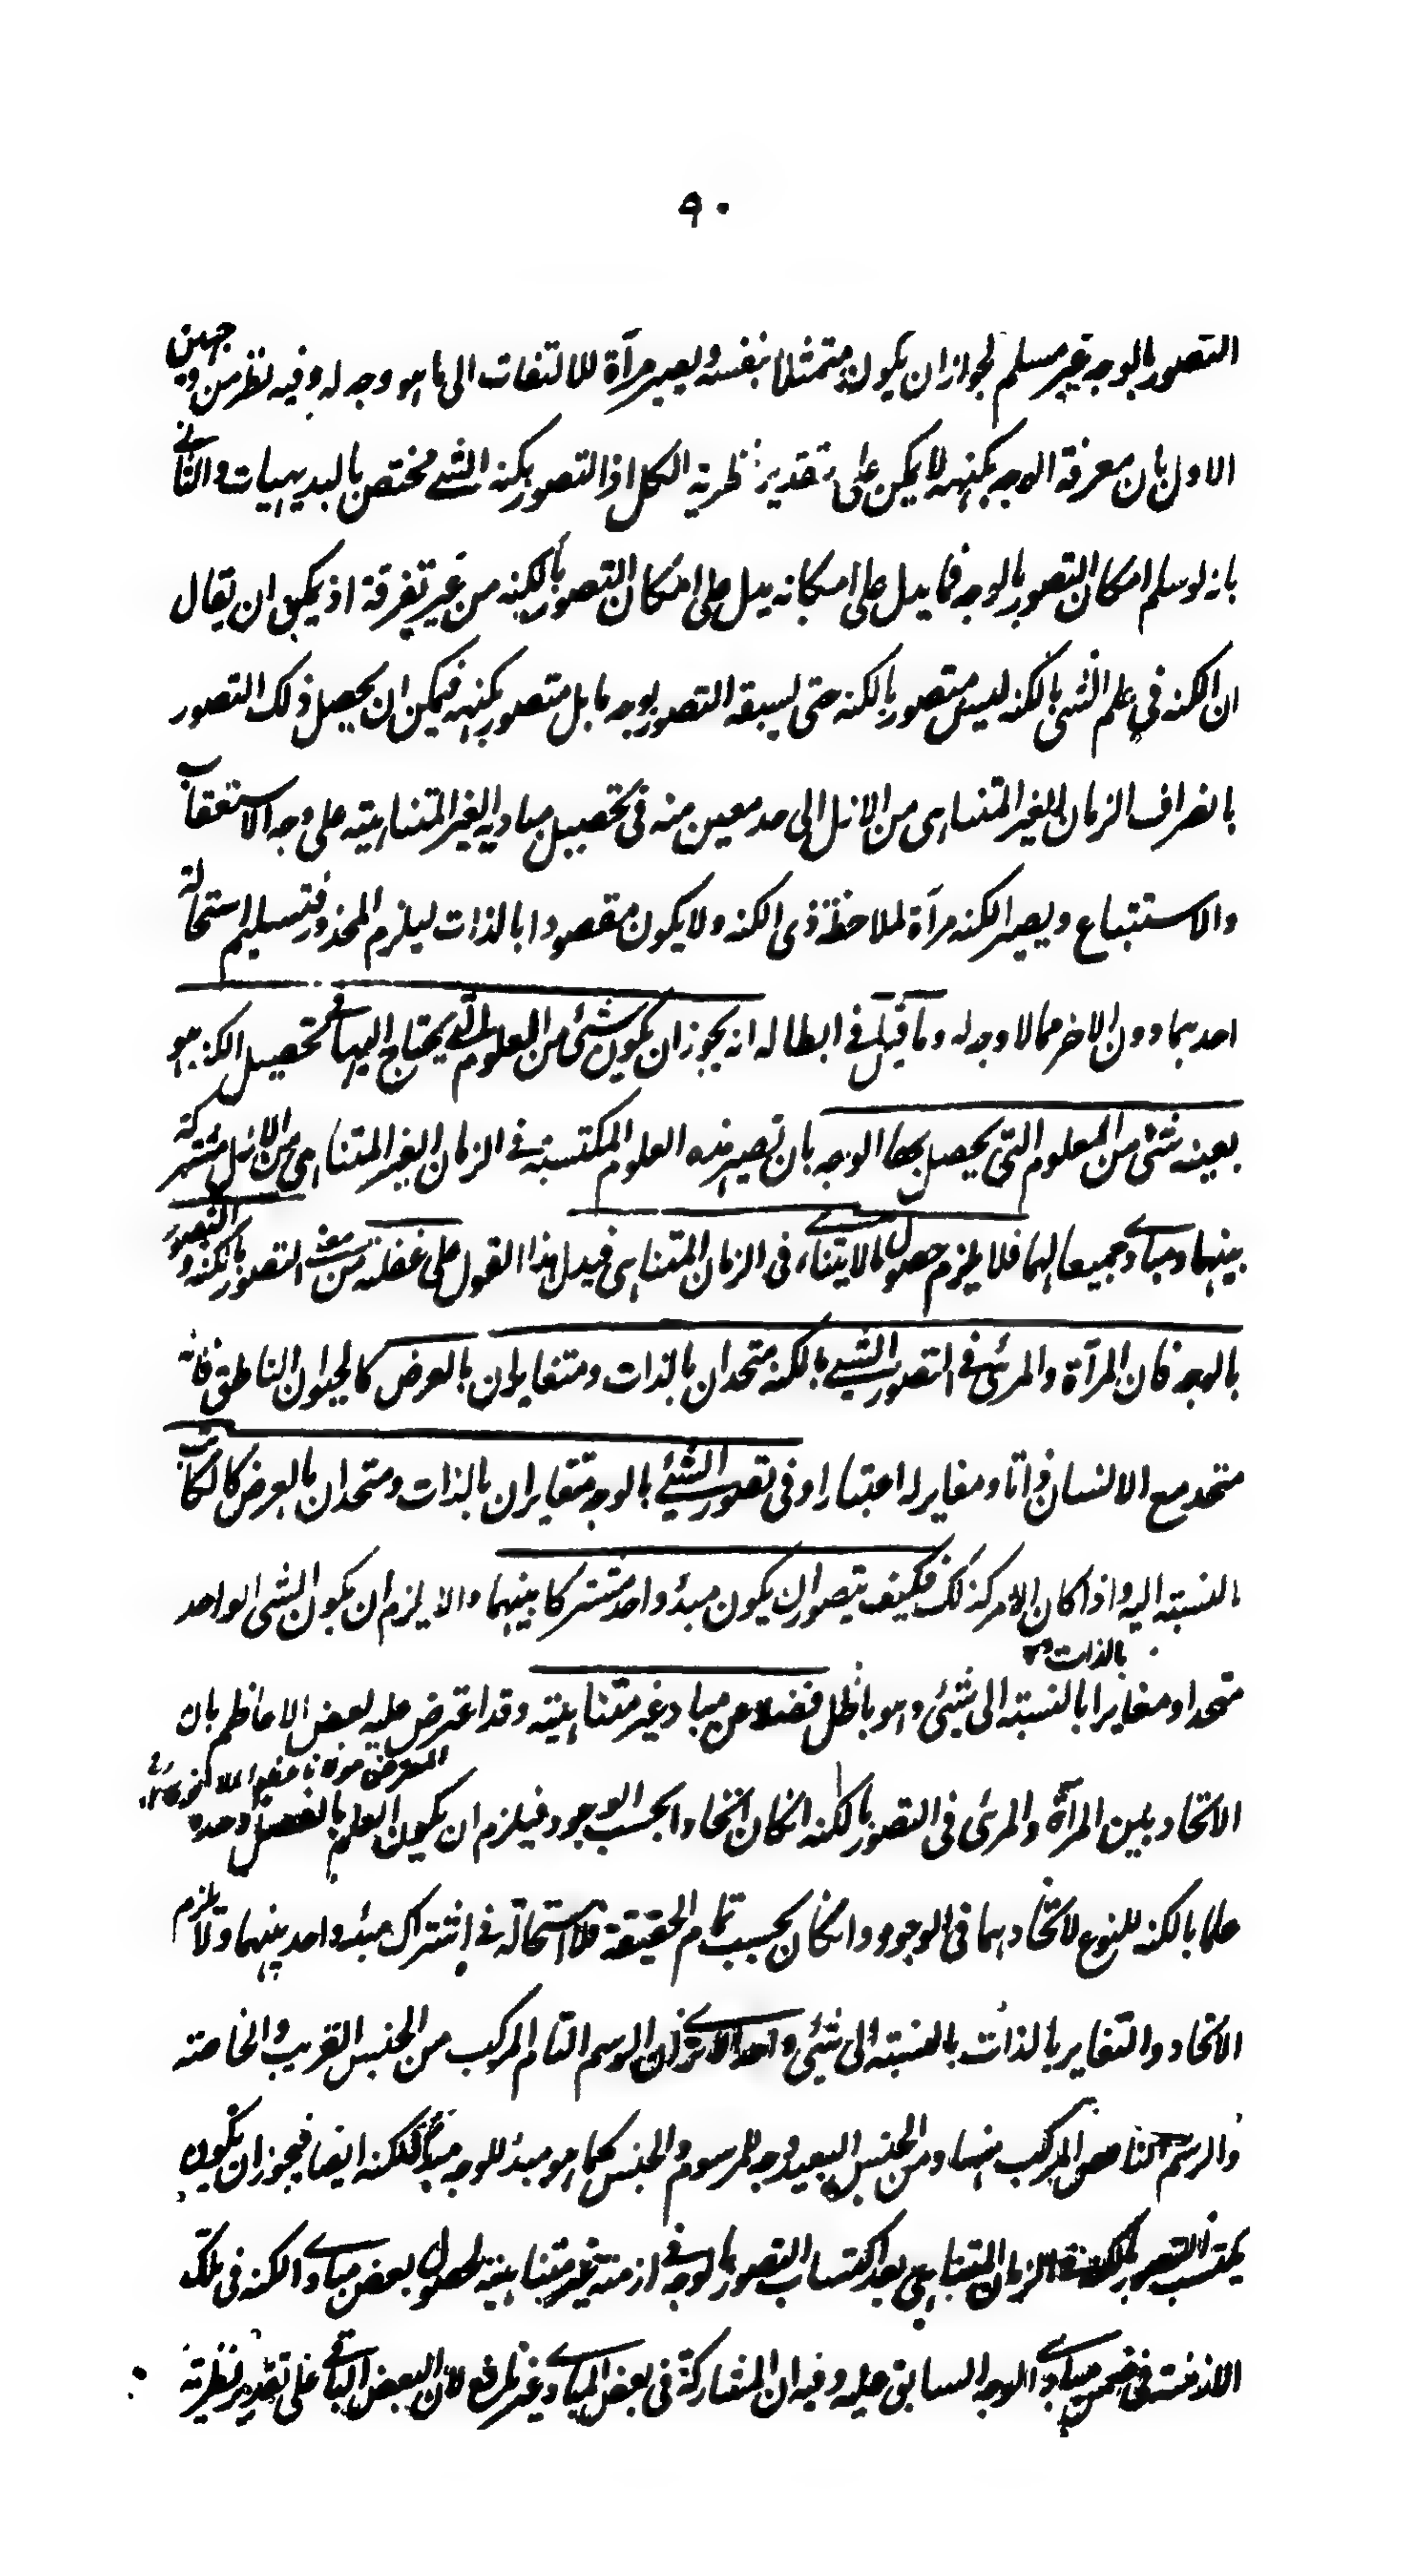 ٩٠
التصور بالوجه غير مسلم لجواز ان يكون متمثلا بنفسه ويصير مرآة للالتفات الى ما هو وجه له وفيه نظر من وجهين
الاول بان معرفة الوجه بكنهه لا يمكن على تقدير نظرية الكل اذ التصور بكنه الشئ مختص بالبديهيات والثانى
بانه لو سلم امكان التصور بالوجه فما يدل على امكانه يدل على امكان التصور بالكنه من غير تفرقة اذ يمكن ان يقال
ان الكنه فى علم الشئ بالكنه ليس متصور بالكنه حتى يسبقه التصور بوجه ما بل متصور بكنهه فيمكن ان يحصل ذلك التصور
بانصراف الزمان الغير المتناهى من الازل الى حد معين منه فى تحصيل مباديه الغير المتناهية على وجه الاستعقاب
والاستتباع ويصير الكنه مرآة لملاحظة ذى الكنه ولا يكون مقصودا بالذات ليلزم المحذور فتسليم استحالة
احدهما دون الاخر مما لا وجه له وما قيل فى ابطاله انه يجوز ان يكون شئ من العلوم التى يحتاج اليها فى تحصيل الكنه هو
بعينه شئ من المعلوم التى يحصل بها الوجه بان تصير هذه العلوم المكتسبة فى الزمان الغير المتناهى من الازل مشتركة
بينهما ومبادى جميعا لهما فلا يلزم حصول ما لا يتناهى فى الزمان المتناهى فيدل هذا القول على غفلة من التصور بالكنه والتصور
بالوجه فان المرآة والمرئى فى التصور الشئ بالكنه متحدان بالذات ومتغايران بالعرض كالحيوان الناطق فانه
متحد مع الانسان ذاتا ومغاير له اعتبارا وفى تصور الشئ بالوجه متغايران بالذات ومتحدان بالعرض كالكاتب
بالنسبة اليه واذا كان الامر كذلك فكيف يتصور ان يكون مبدؤ واحد مشتركا بينهما والا يلزم ان يكون الشئ الواحد
بالذات
متحدا ومغايرا بالنسبة الى شئ وهو باطل فضلا عن مباد غير متناهية وقد اعترض عليه بعض الاعاظم بان
المعترض مولانا
الاتحاد بين المرآة والمرئى فى التصور بالكنه ان كان اتحادا بحسب الوجود فيلزم ان يكون العلم بالفصل وحده
علما بالكنه للنوع لاتحادهما فى الوجود وان كان بحسب تمام الحقيقة فلا استحالة فى اشتراك مبدء واحد بينهما ولا يلزم
الاتحاد والتغاير بالذات بالنسبة الى شئ واحد الا ترى ان الرسم التام المركب من الجنس القريب والخاصة
والرسم الناقص المركب منها ومن الجنس البعيد وجه للمرسوم والجنس كما هو مبدئ للوجه مبدأ للكنه ايضا فيجوز ان يكون
يكتسب التصور بالكنه فى الزمان المتناهى بعد اكتساب التصور بالوجه فى ازمنة غير متناهية لحصول بعض مبادى الكنه فى تلك
الازمنة فى ضمن مبادى الوجه السابق عليه وفيه ان المشاركة فى بعض المبادى غير نافع لان البعض الباقى على تقدير نظرية